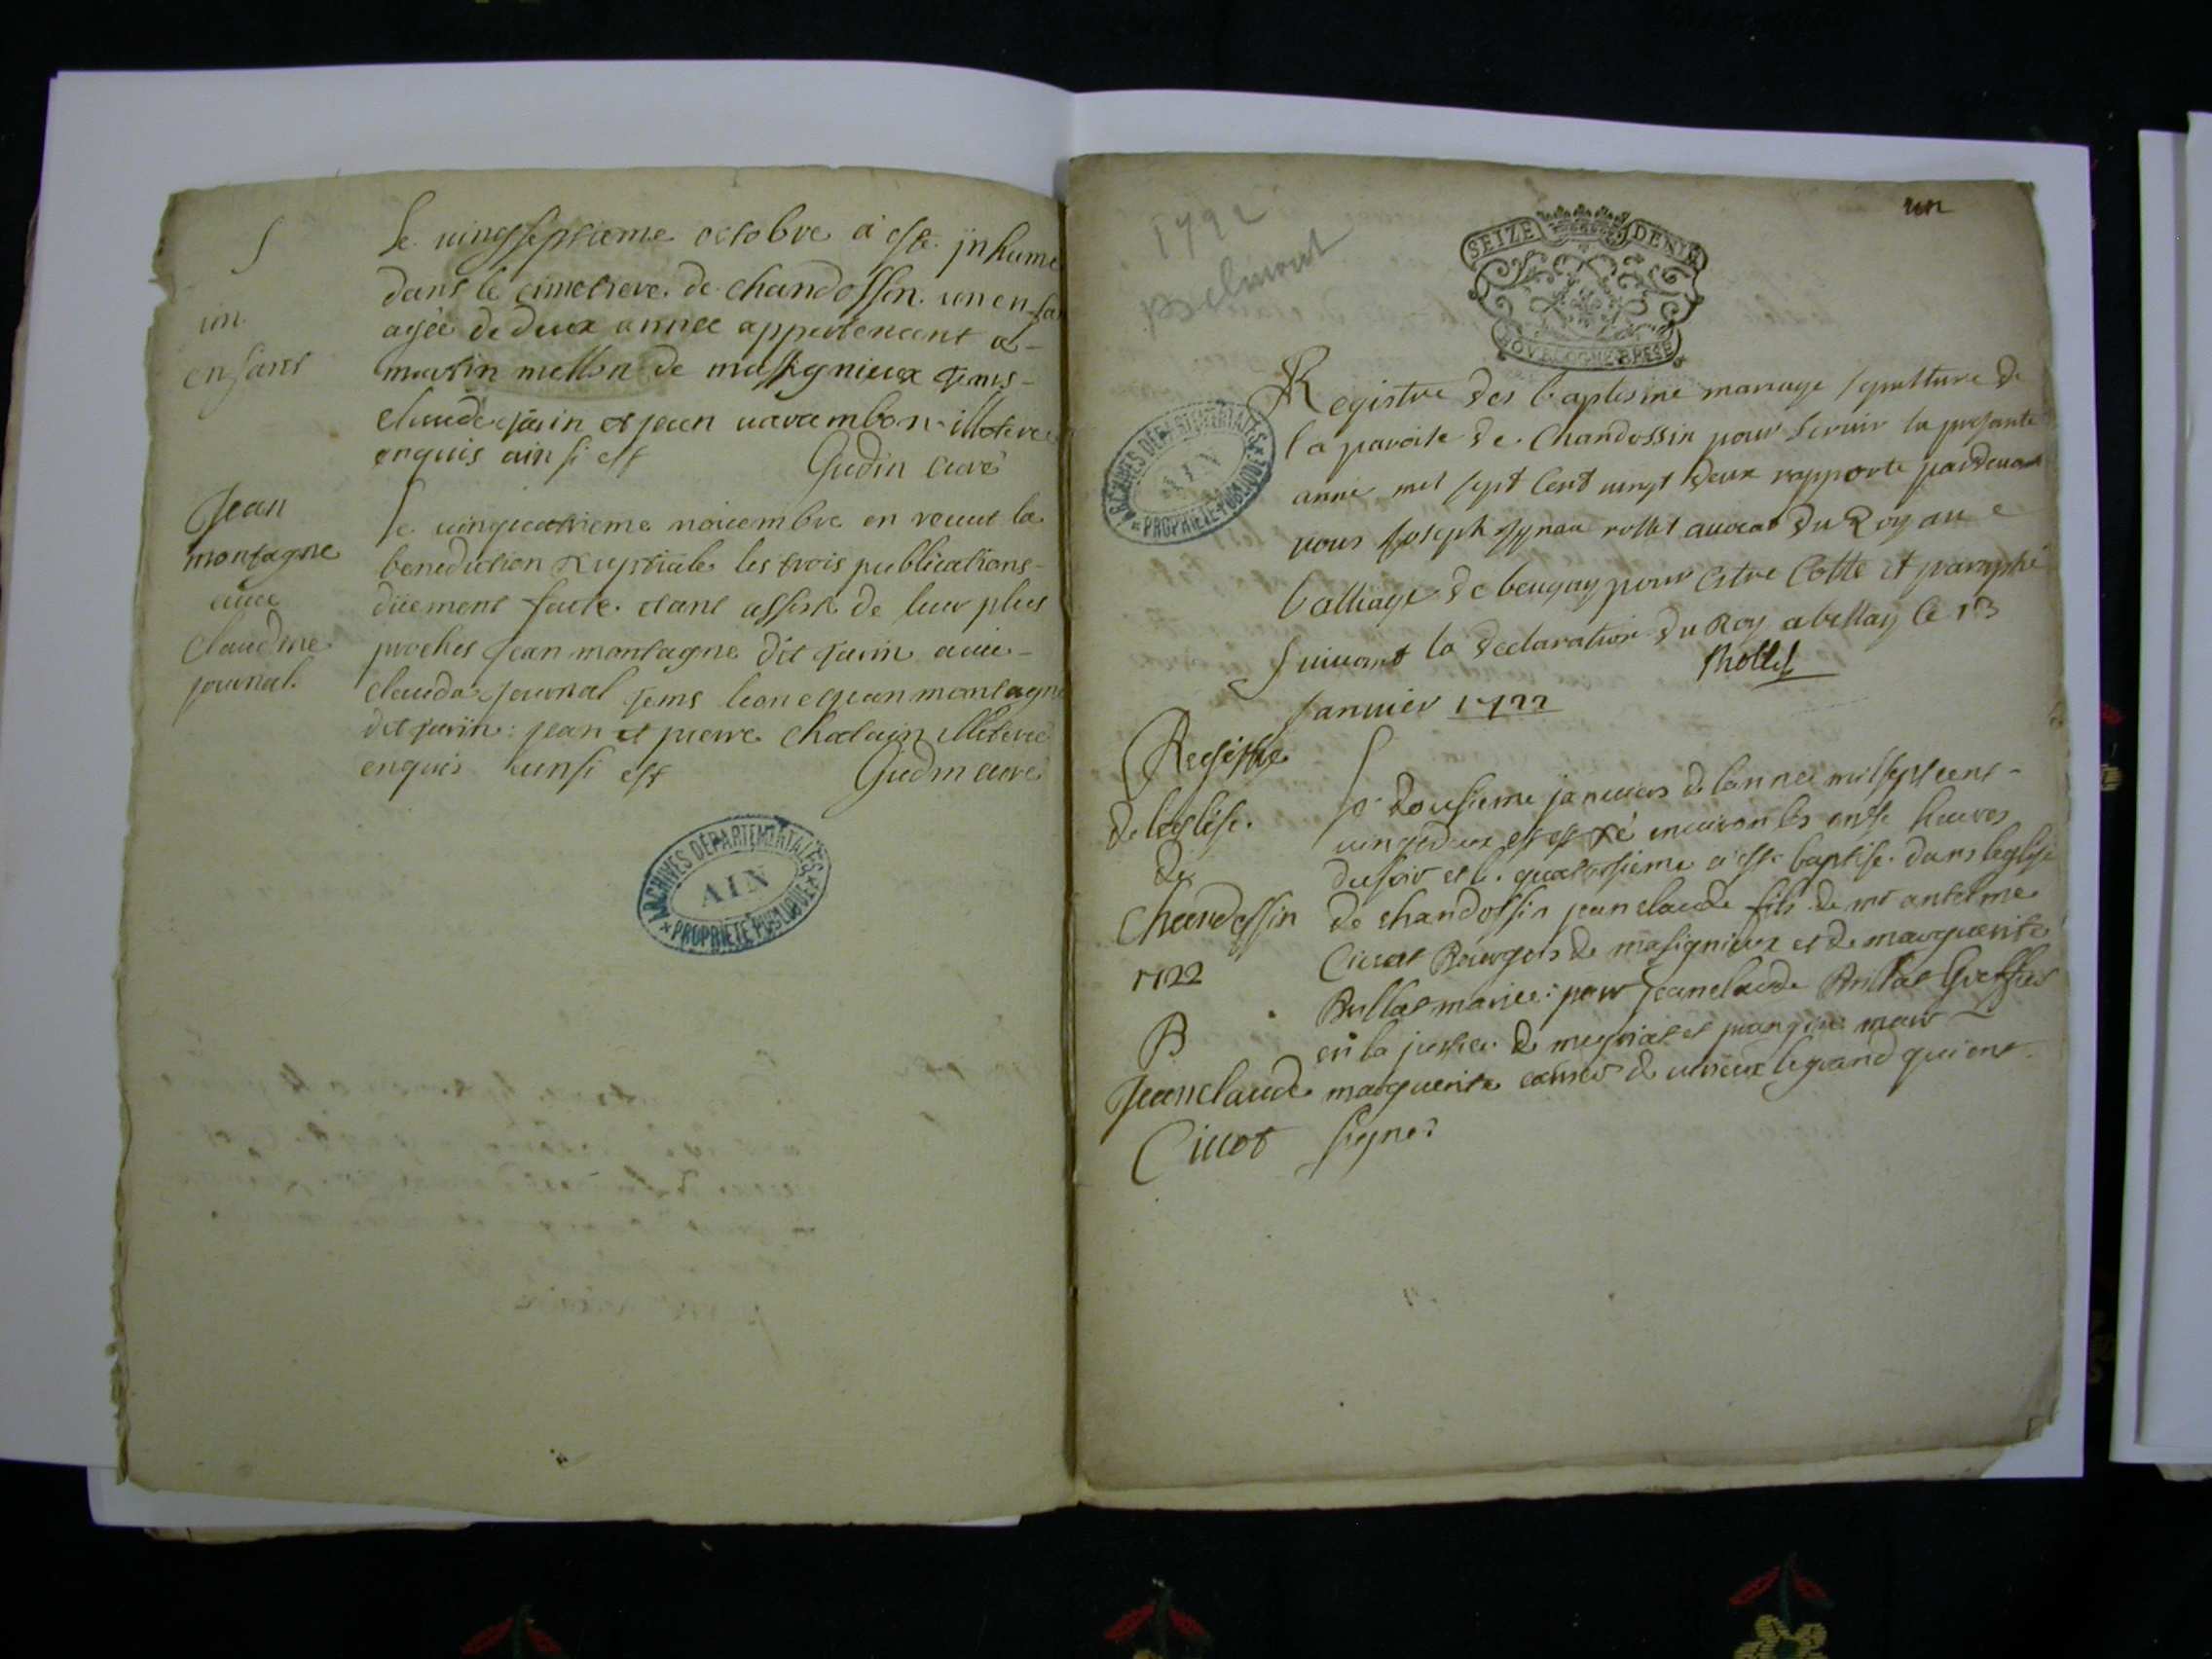 S
un
enfant
Le vingtseptieme octobre a esté jnhume
dans le cimetiere de chandossin un enfan
agée de deux année appertenent a
martin mellon de massignieux tems
claude jarin et jean varambon illeteré
enquis ainsi est Gudin curé
Jean
montagne
avec
claudine
journal
le vingtcatrieme novembre on receut la
benediction nuptiale les trois publications
düement faite etant assisté de leur plus
proches jean montagne dit jarin avec
clauda journal tems leone jean montagne
dit jarin jean et pierre chatain illeteré
enquis ainsi est Gudin curé
ARCHIVES DÉPARTEMENTALES
AIN
PROPRIÉTÉ PUBLIQUE
1722
Belmont
un
SEIZE DENIERS
BOURGOGNE BRESSE
ARCHIVES DÉPARTEMENTALES
AIN
PROPRIÉTÉ PUBLIQUE
Registre des baptesme mariage sepulture de
la paroise de Chandossin pour servir la presante
anné mil sept cent vingt deux rapporté pardevant
nous Joseph rollet avocat du Roy au
balliage de beugay pour estre cotté et paraphé
suivant la declaration du Roy a bellay le 13
janvier 1722 Rollet
Registre
de leglise
de
Chandossin
1722
B
Jeanclaude
Civot
le dousieme janvier de lannee milseptcent
vingtdeux est né environ les onse heures
du soir et le quatorsieme a esté baptisé dans leglise
de chandossin jeanclaude fils de mr antelme
Civot Bourgois de masignieux et de marguerite
Brillat mariée par jeanclaude Brillat Greffier
en la justice de et mar
marguerite de virieux legrand qui ont
signes